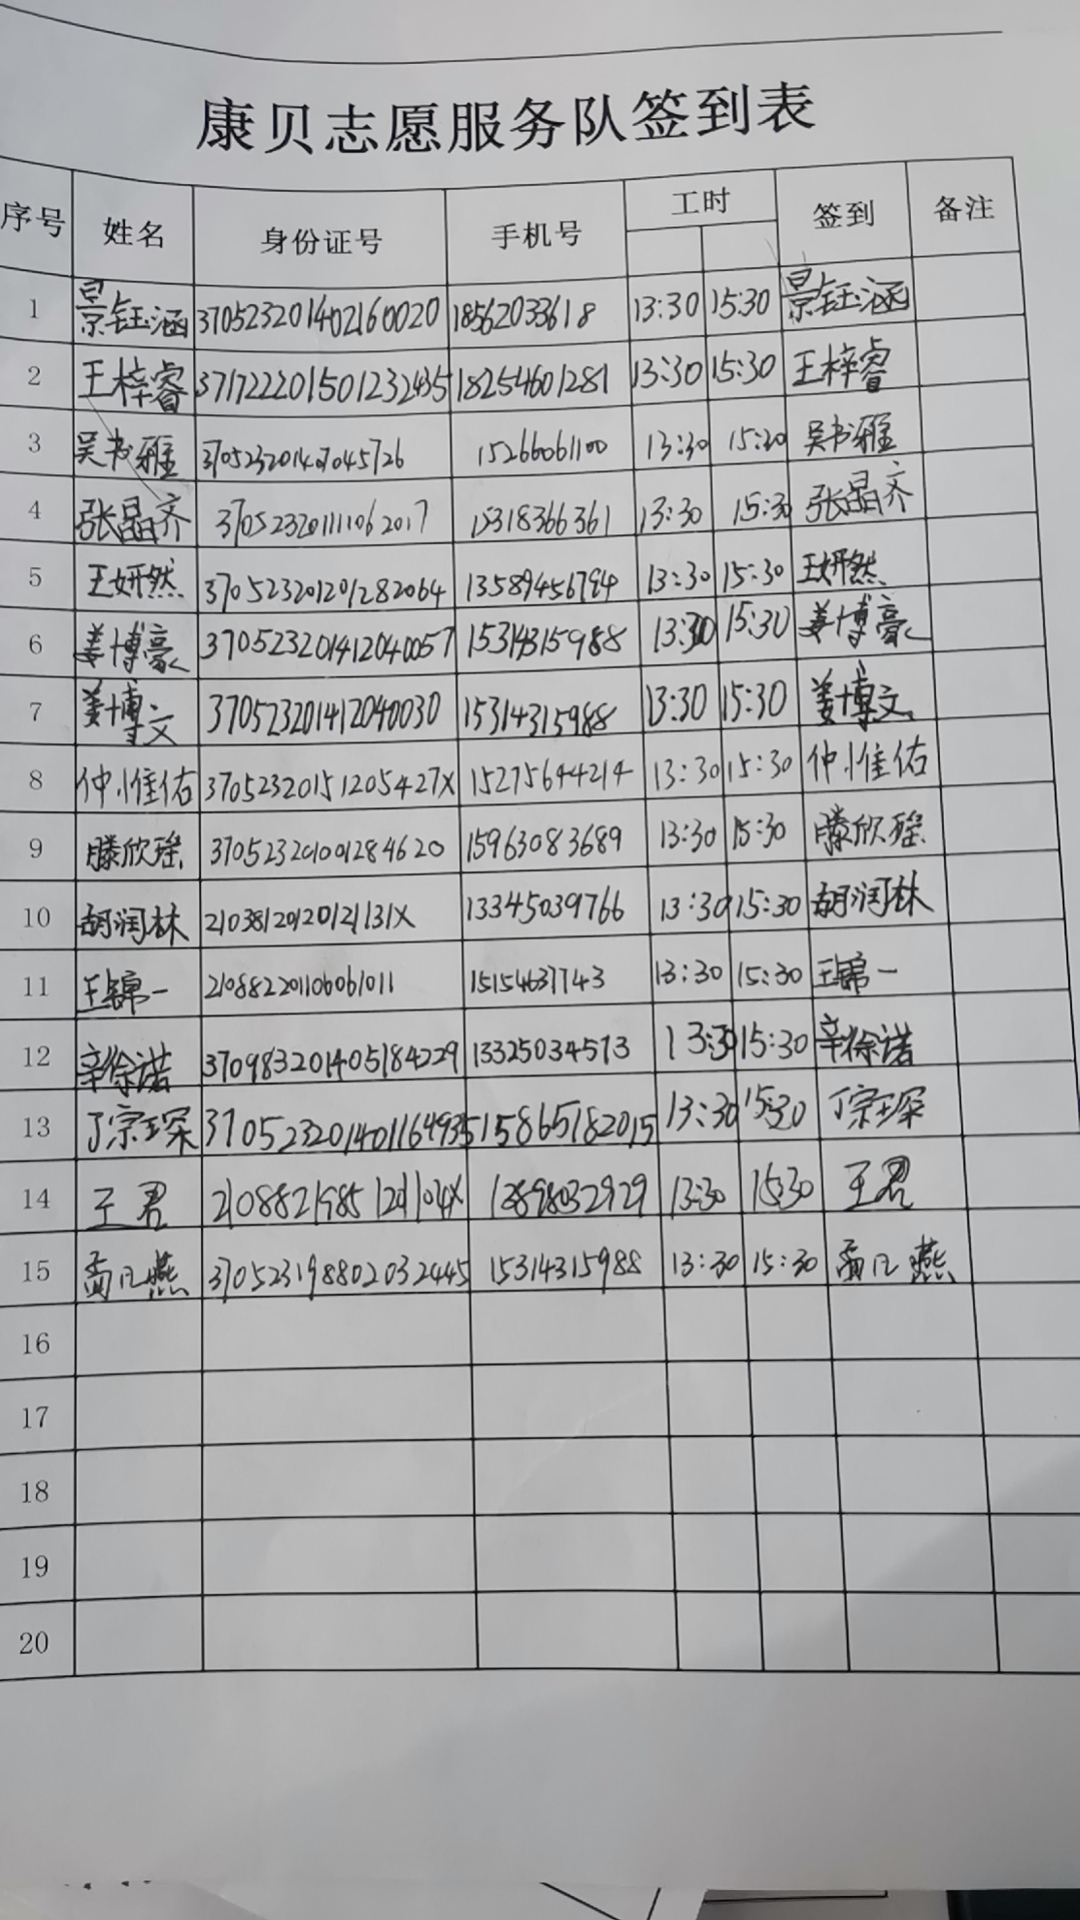 康贝志愿服务队签到表
序号 姓名 身份证号 手机号 工时 签到 备注
1 景钰涵 370523201402160020 18562033618 13:30 15:30 景钰涵
2 王梓睿 371722201501232435 18254601281 13:30 15:30 王梓睿
3 吴书雅 370523201407045726 15266061100 13:30 15:30 吴书雅
4 张晶齐 370523201111062017 15318366361 13:30 15:30 张晶齐
5 王妍然 370523201201282064 13589456794 13:30 15:30 王妍然
6 姜博豪 370523201412040057 15314315988 13:30 15:30 姜博豪
7 姜博文 370523201412040030 15314315988 13:30 15:30 姜博文
8 仲惟佑 37052320151205427X 15275644214 13:30 15:30 仲惟佑
9 滕欣瑶 370523201001284620 15963083689 13:30 15:30 滕欣瑶
10 胡润林 21038120120121131X 13345039766 13:30 15:30 胡润林
11 王锦一 210882201106061011 15154637743 13:30 15:30 王锦一
12 辛徐诺 370983201405184229 13325034573 13:30 15:30 辛徐诺
13 丁宗琛 370523201401164935 15865182015 13:30 15:30 丁宗琛
14 王君 21088219851201104X 13898032929 13:30 15:30 王君
15 燕 370523198802032445 15314315988 13:30 15:30 燕
16
17
18
19
20